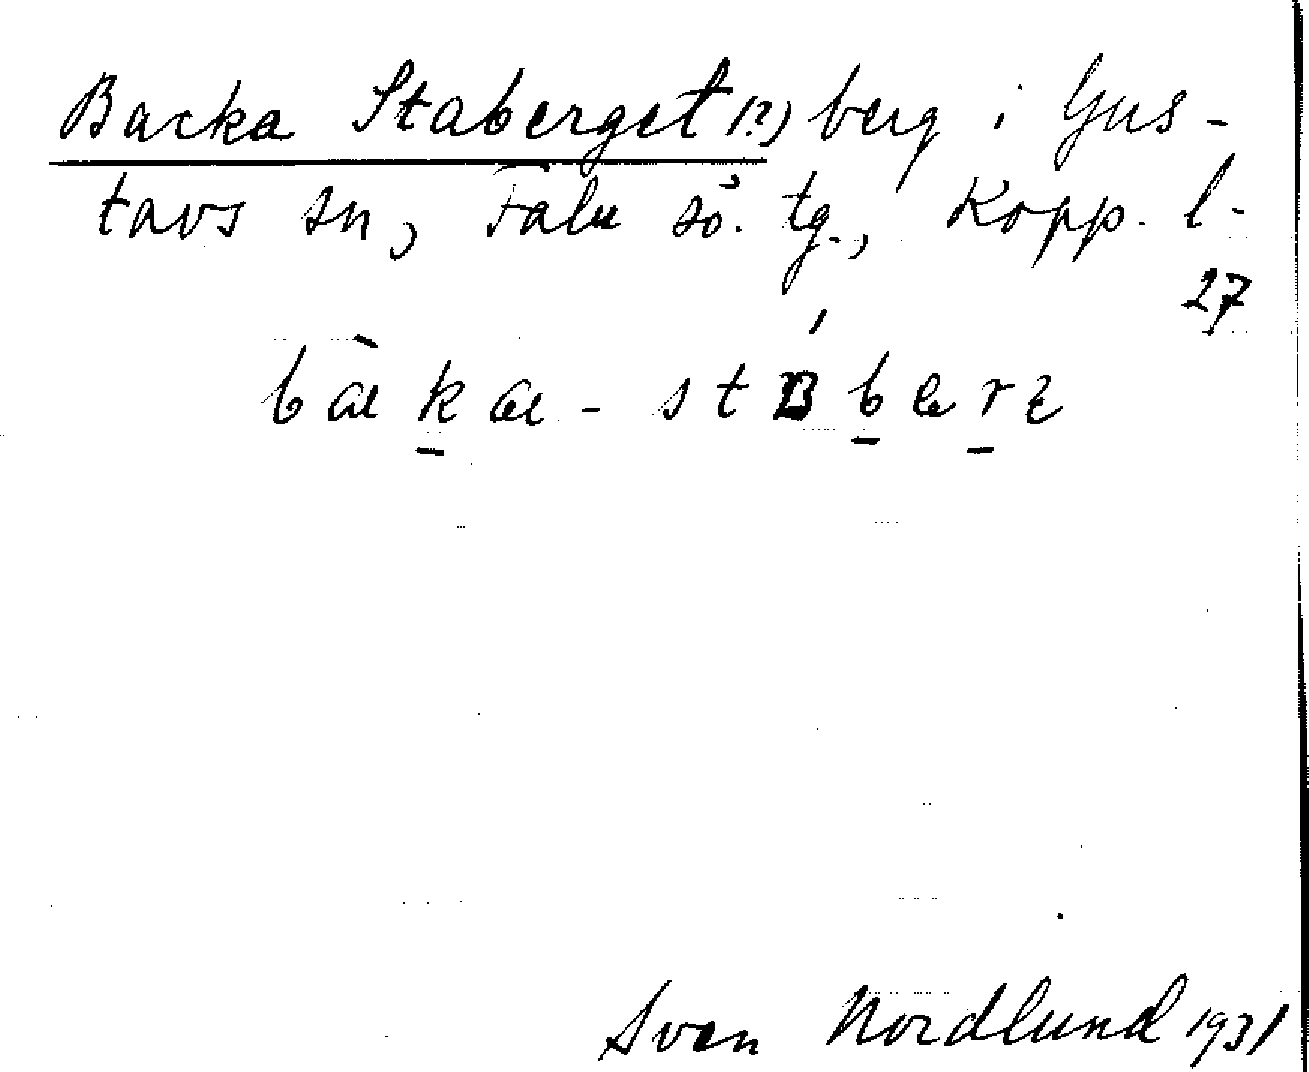 Backa Staberget (?) berg i Gus-
tavs sn, Falu sö. tg., Kopp. l.
27
bàkα-st berz
Sven Nordlund 1931